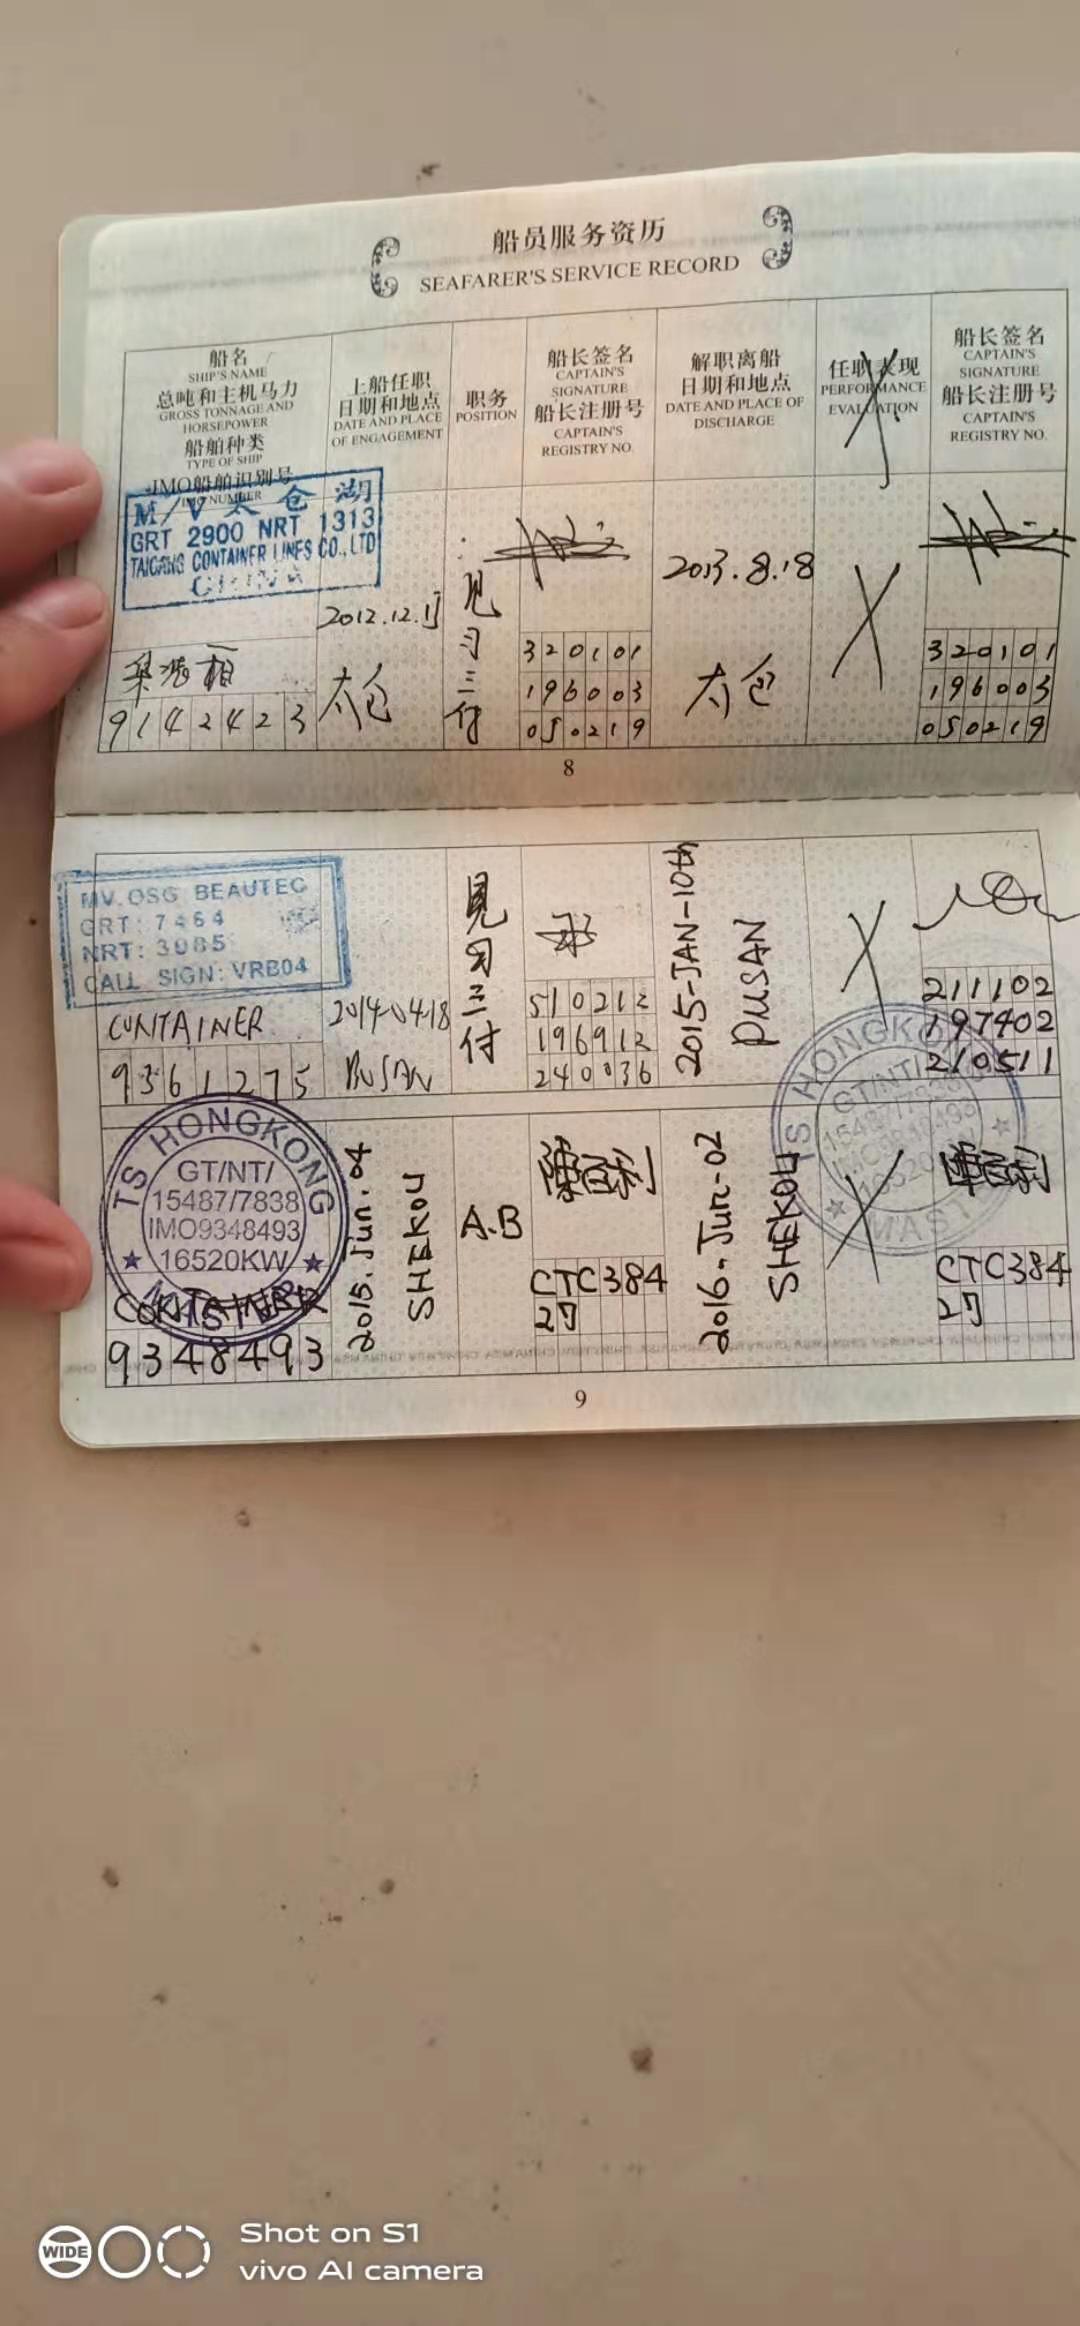 船员服务资历
SEAFARER'S SERVICE RECORD
船名
SHIP'S NAME
总吨和主机马力
GROSS TONNAGE AND
HORSEPOWER
船舶种类
TYPE OF SHIP
IMO船舶识别号
IMO NUMBER
上船任职
日期和地点
DATE AND PLACE
OF ENGAGEMENT
职务
POSITION
船长签名
CAPTAIN'S
SIGNATURE
船长注册号
CAPTAIN'S
REGISTRY NO.
解职离船
日期和地点
DATE AND PLACE OF
DISCHARGE
任职表现
PERFORMANCE
EVALUATION
船长签名
CAPTAIN'S
SIGNATURE
船长注册号
CAPTAIN'S
REGISTRY NO.
M/V 太仓湖
GRT 2900 NRT 1313
TAICANG CONTAINER LINES CO.,LTD
CHINA
集装箱
9142423
太仓
见习三付
320101
196003
050219
2013.8.18
太仓
320101
196003
050219
8
MV.OSG BEAUTEC
GRT: 7464
NRT: 3085
CALL SIGN: VRBO4
CONTAINER
9361275
2014-04-18
BUSAN
見习三付
510212
196912
240036
2015-JAN-10th
PUSAN
211102
197402
210511
TS HONGKONG
GT/NT/
15487/7838
IMO9348493
16520KW
MASTER
CONTAINER
9348493
2015.Jun.04
SHEKOU
A.B
陳百利
CTC384
27
2016.Jun-02
SHEKOU
TS HONGKONG
GT/NT/
陳百利
CTC384
27
9
WIDE
Shot on S1
vivo AI camera